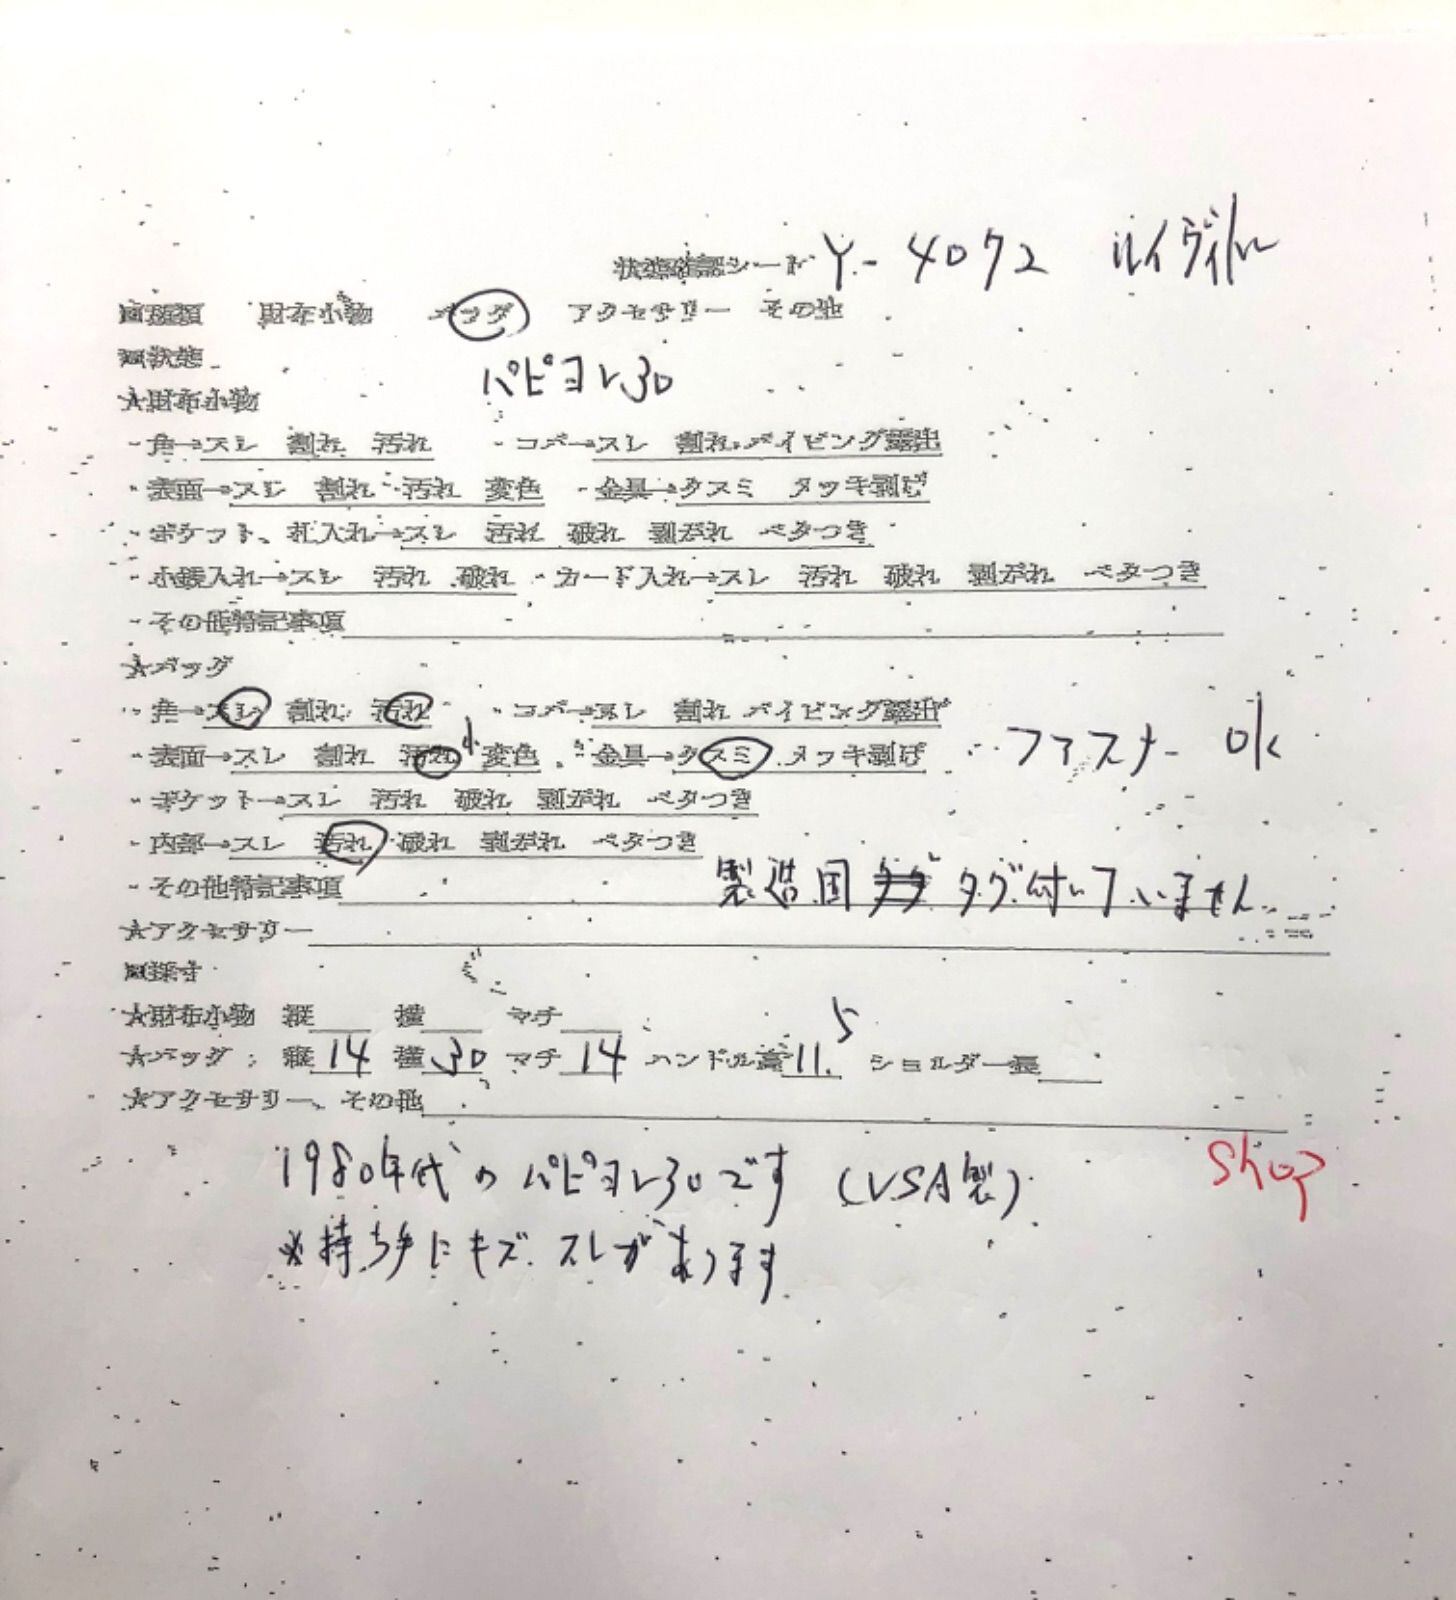 状態確認シート Y-4072 ルイヴィトン
■種類 財布小物 バッグ アクセサリー その他
■状態
パピヨン30
★財布小物
・角→スレ 割れ 汚れ ・コバ→スレ 割れ パイピング露出
・表面→スレ 割れ 汚れ 変色 ・金具→クスミ メッキ剥げ
・ポケット、札入れ→スレ 汚れ 破れ 剥がれ ベタつき
・小銭入れ→スレ 汚れ 破れ ・カード入れ→スレ 汚れ 破れ 剥がれ ベタつき
・その他特記事項
★バッグ
・角→スレ 割れ 汚れ ・コバ→スレ 割れ パイピング露出
・表面→スレ 割れ 汚れ小 変色 ・金具→クスミ メッキ剥げ ・ファスナー ok
・ポケット→スレ 汚れ 破れ 剥がれ ベタつき
・内部→スレ 汚れ 破れ 剥がれ ベタつき
・その他特記事項 製造国 タグ付いていません
★アクセサリー
■採寸
★財布小物 縦 横 マチ
★バッグ 縦 14 横 30 マチ 14 ハンドル高 11.5 ショルダー長
★アクセサリー、その他
1980年代のパピヨン30です (USA製)
※持ち手にキズ スレがあります
Shop